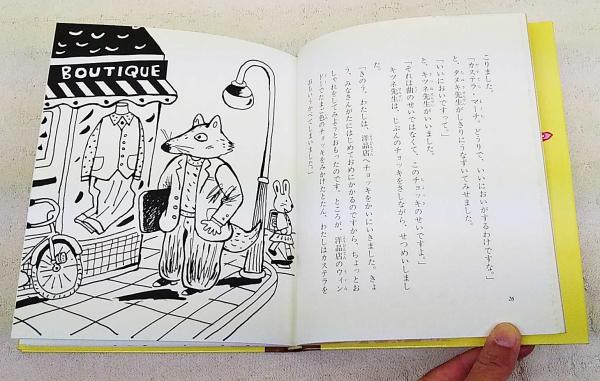 BOUTIQUE
こりました。
「カステラ、マーチ。どうりで、いいにおいがするわけですな。」
と、タヌキ先生がしきりにうなずいてみせました。
「いいにおいですって。」
と、キツネ先生がいいました。
「それは曲のせいではなくて、このチョッキのせいですよ。」
キツネ先生は、じぶんのチョッキをさしながら、せつめいしまし
た。
「きのう、わたしは、洋品店へチョッキをかいにいきました。きょ
う、みなさんがたにはじめておめにかかるのですから、ちょっとお
しゃれをしてみようとおもったのです。ところが、洋品店のウイン
ドーでたまご色のチョッキをみかけたとたん、わたしはカステラを
26